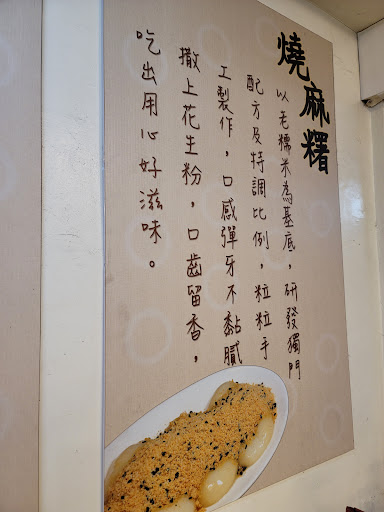 燒麻糬
以老糯米為基底，研發獨門
配方及特調比例，粒粒手
工製作，口感彈牙不黏膩
撒上花生粉，口齒留香，
吃出用心好滋味。